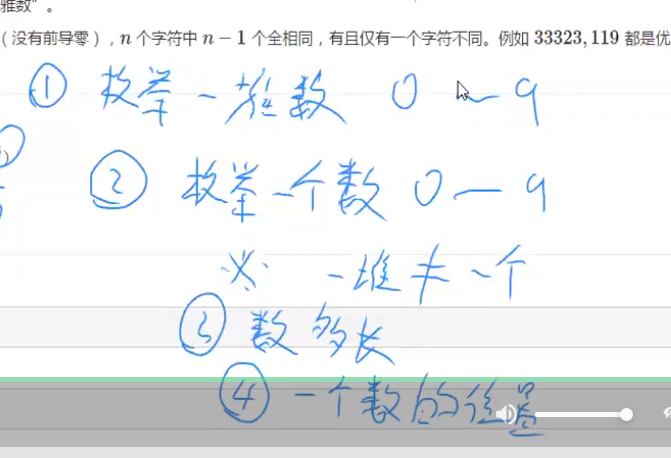 雅数”。
（没有前导零），n 个字符中 n − 1 个全相同，有且仅有一个字符不同。例如 33323, 119 都是优
① 枚举一堆数 0 — 9
② 枚举一个数 0 — 9
※ 一堆 ≠ 一个
③ 数多长
④ 一个数的位置